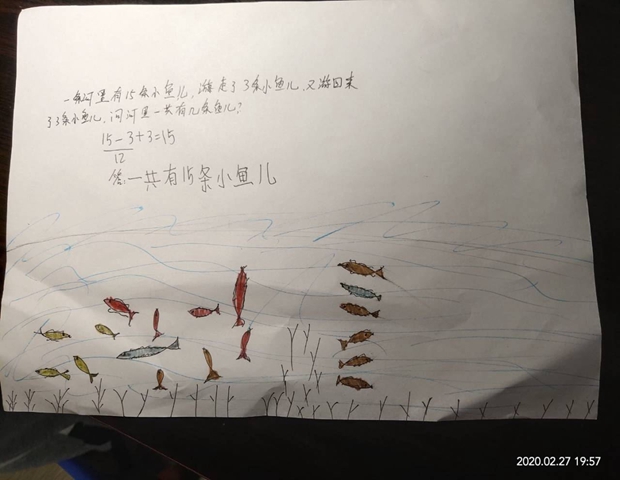 一条河里有15条小鱼儿,游走了3条小鱼儿,又游回来
了3条小鱼儿,问河里一共有几条鱼儿?
15-3+3=15
12
答:一共有15条小鱼儿
2020.02.27 19:57